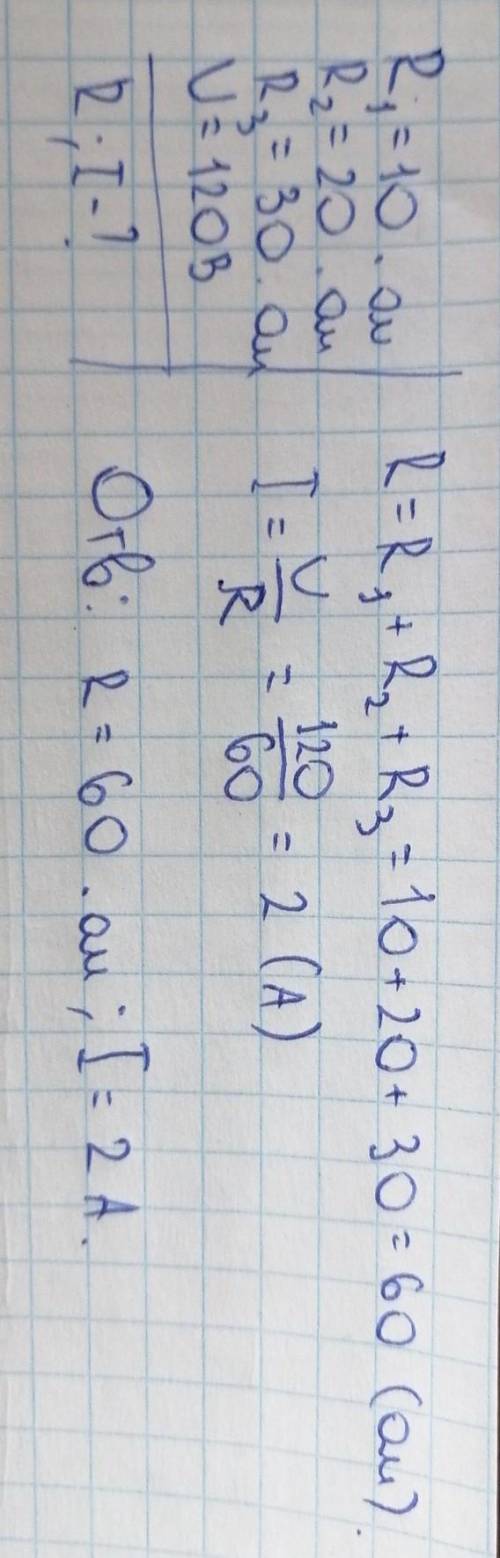 R₁ = 10 . ом
R₂ = 20 . ом
R₃ = 30 . ом
U = 120В
R ; I - ?
R = R₁ + R₂ + R₃ = 10 + 20 + 30 = 60 (ом).
I = U/R = 120/60 = 2 (А)
Отв: R = 60 . ом ; I = 2 А.